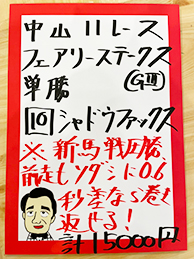 中山11レース
フェアリーステークス
単勝 (GⅢ)
10 シャドウファックス
※新馬戦圧勝
前走センダンに0.6
秒差なら巻き
返せる!
計15000円